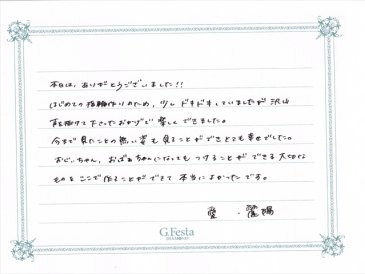 本日は、ありがとうございました!!
はじめての指輪作りのため、少しドキドキしていましたが沢山
声を掛けて下さったおかげで楽しくできました。
今まで見たことの無い姿も見ることができとても幸せでした。
おじいちゃん、おばあちゃんになってもつけることができる大切な
ものをここで作ることができて本当によかったです。
愛・
G.Festa